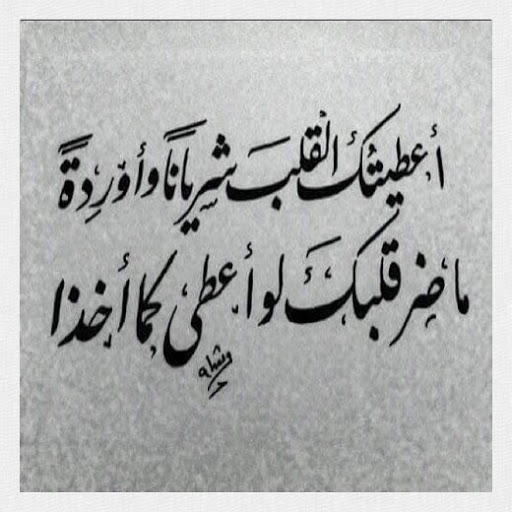 أعطيتك القلبَ شريانًا وأوردةً
ما ضر قلبكَ لو أعطى كما أخذا